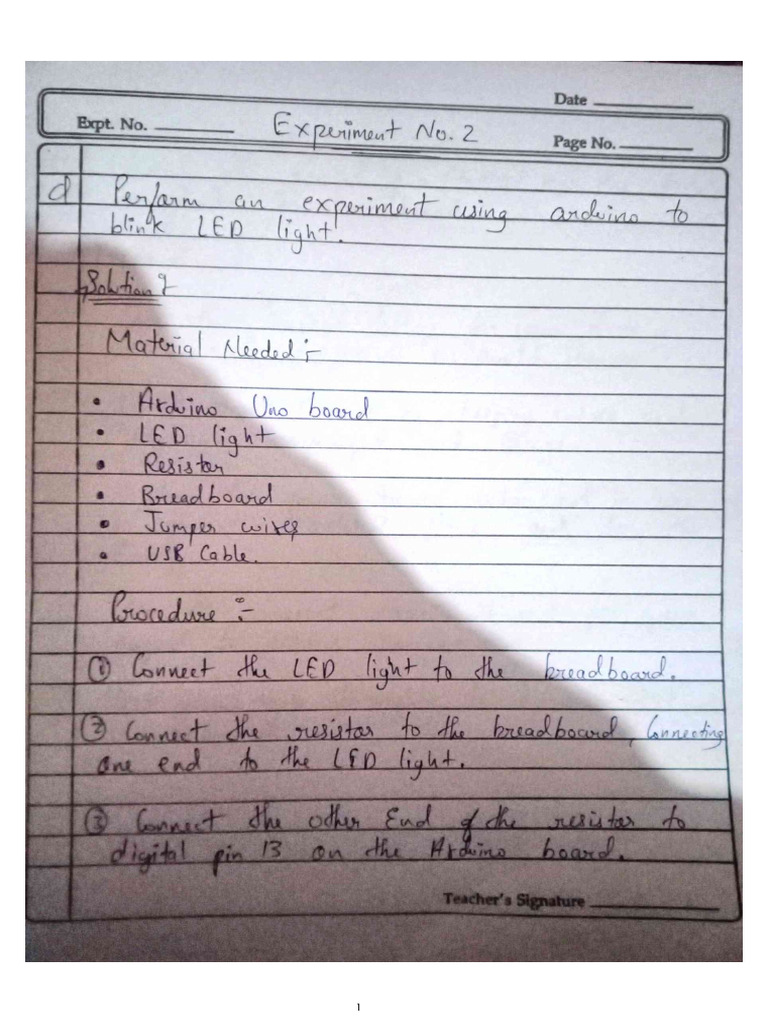 Date
Expt. No.
Experiment No. 2
Page No.
Perform an experiment using arduino to
blink LED light.
Solution
Material Needed :-
• Arduino Uno board
• LED light
• Resistor
• Breadboard
• Jumper wires
• USB Cable.
Procedure :-
① Connect the LED light to the breadboard.
② Connect the resistor to the breadboard, Connecting
one end to the LED light.
③ Connect the other End of the resistor to
digital pin 13 on the Arduino board.
Teacher's Signature
1